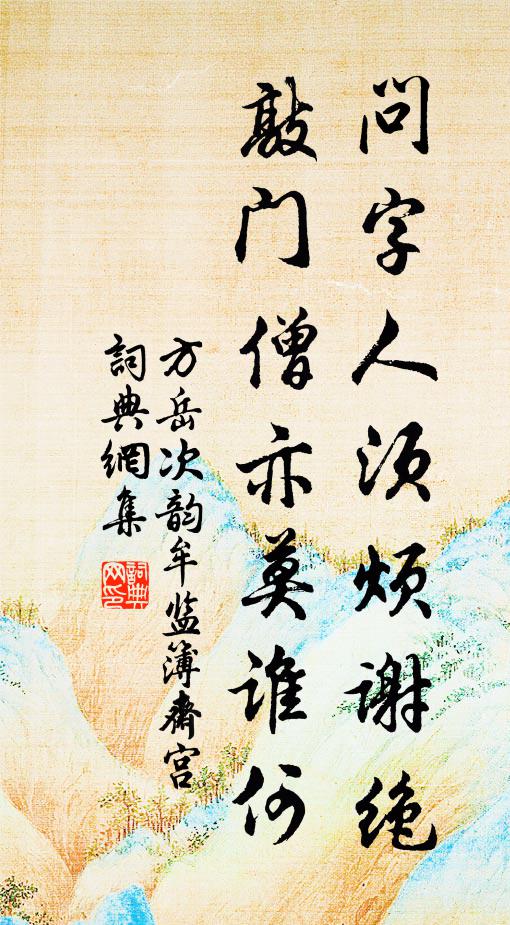 问字人须烦谢绝
敲门僧亦莫谁何
方岳次韵牟监簿斋宫
詞典網集
詞典
网印